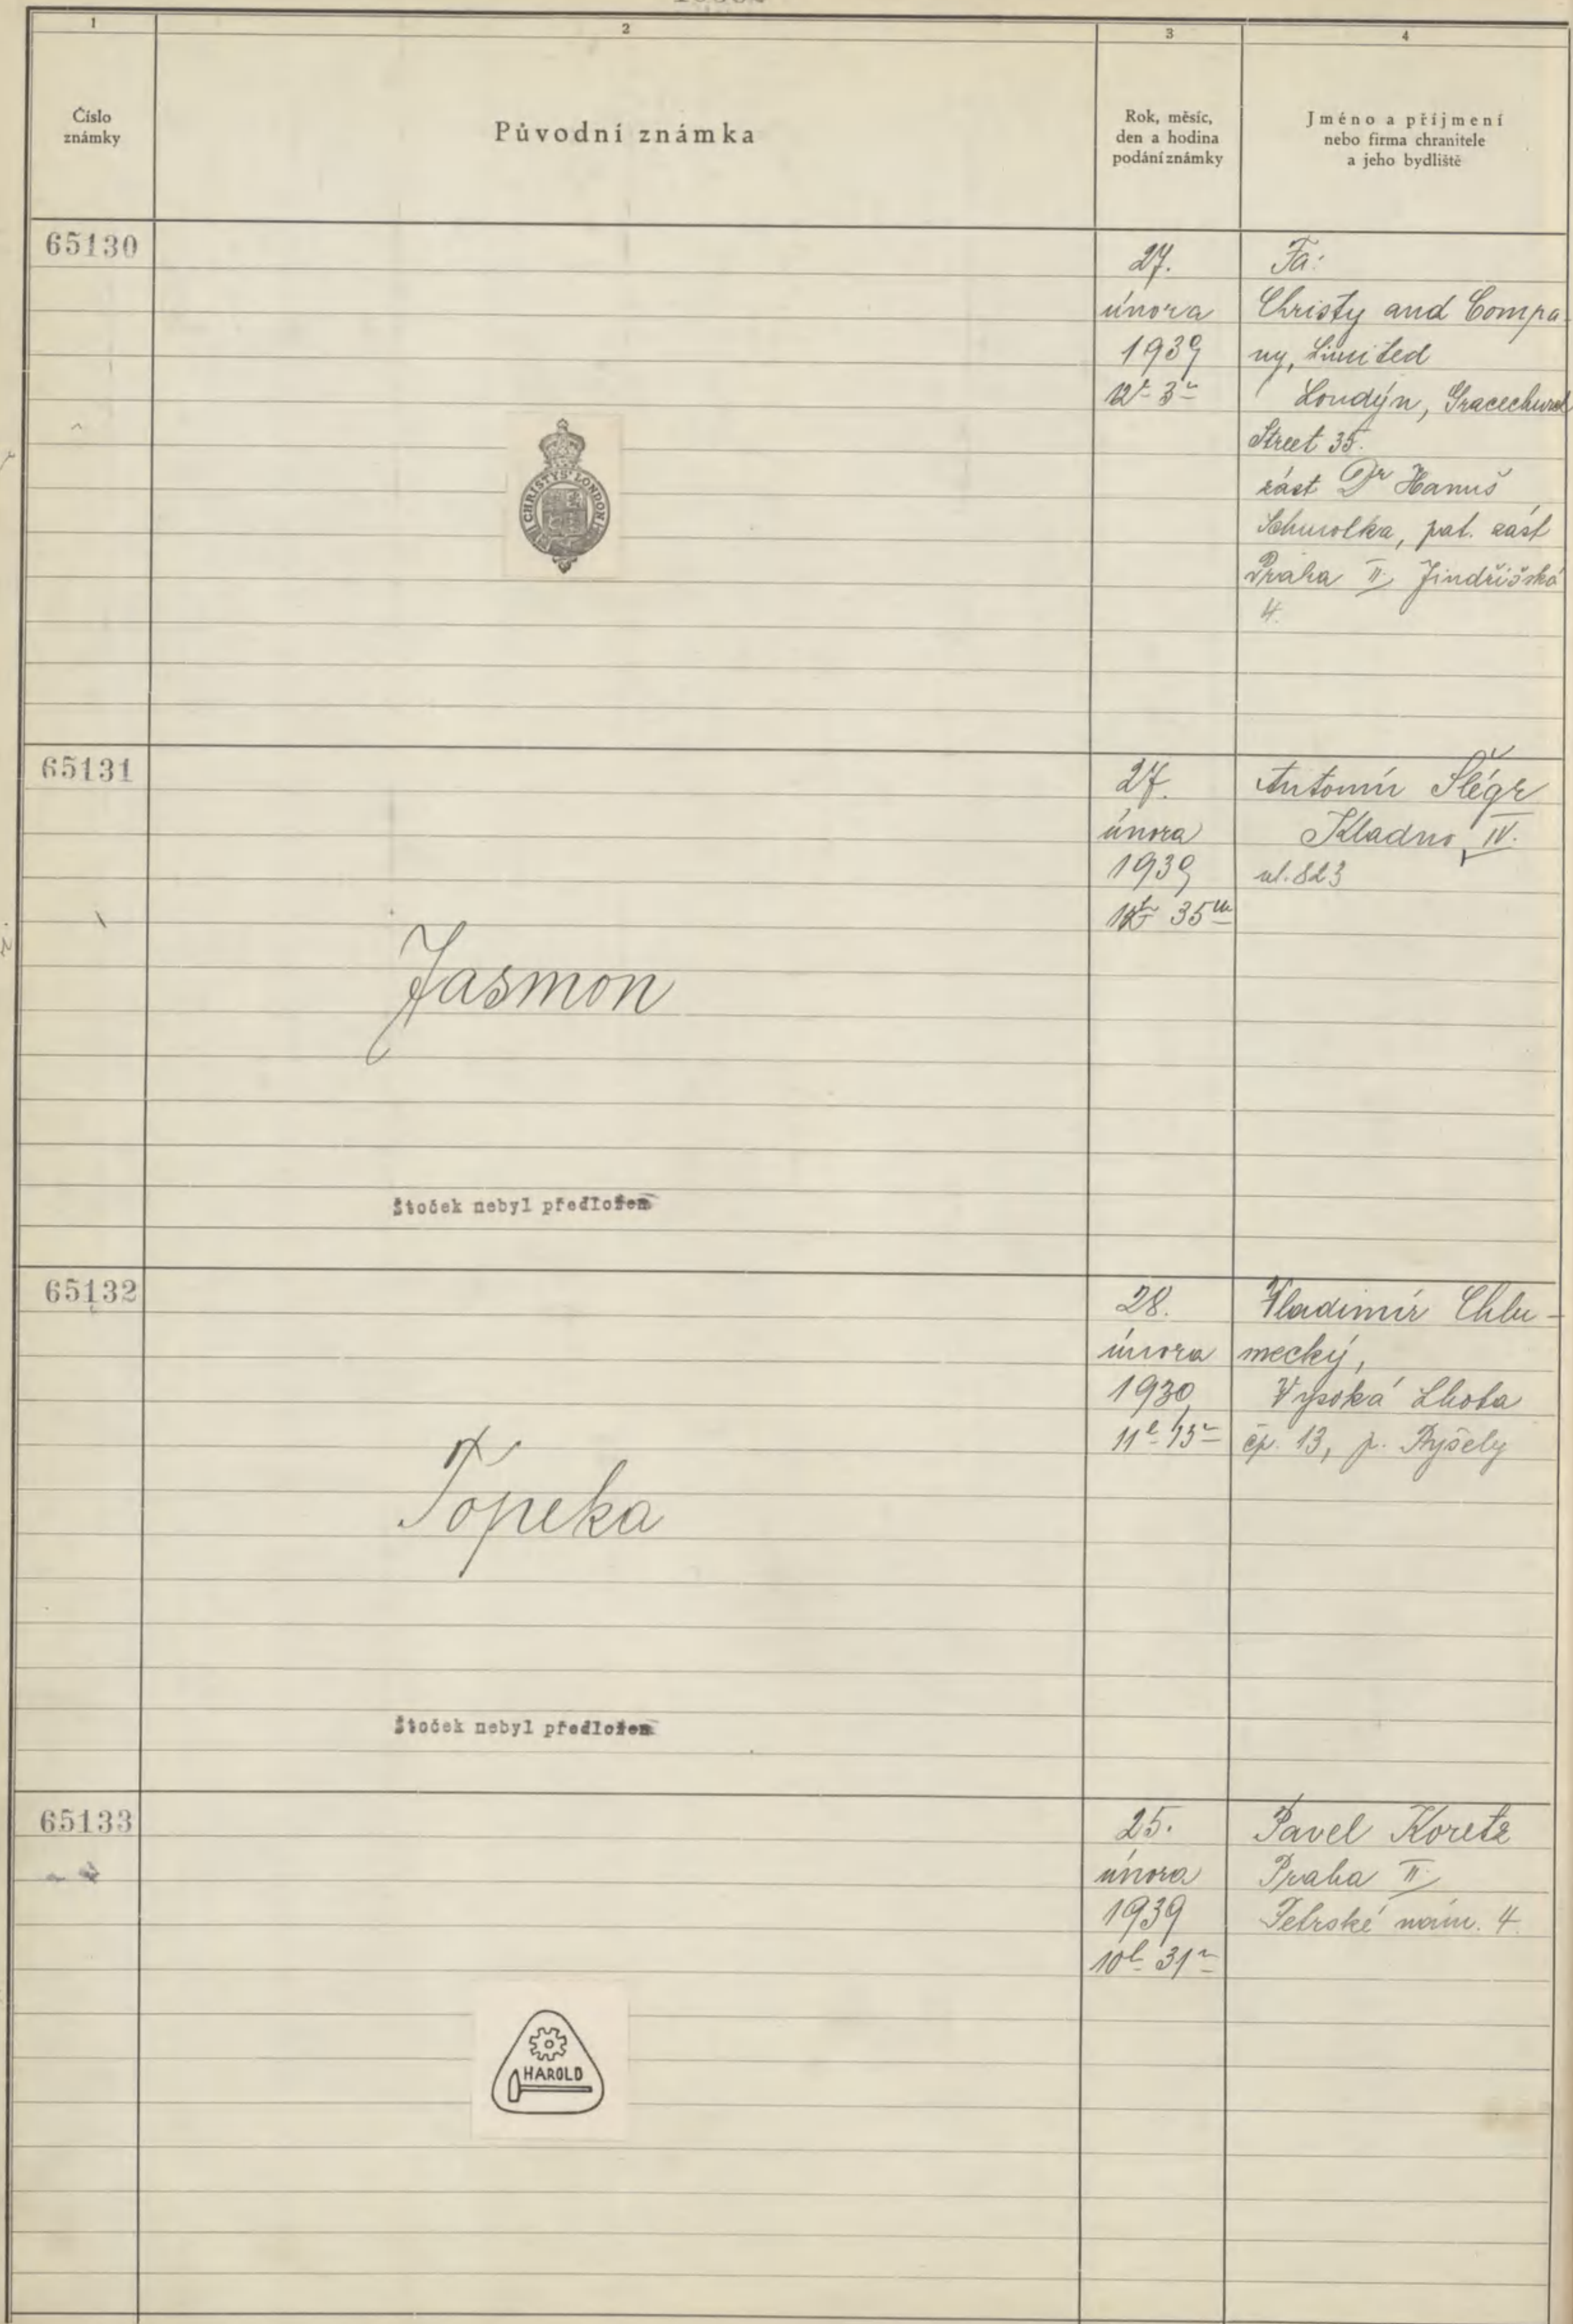 1
2
3
4
Číslo
známky
Původní známka
Rok, měsíc,
den a hodina
podání známky
Jméno a příjmení
nebo firma chranitele
a jeho bydliště
65130
CHRISTYS' LONDON
27.
února
1939
12h 3m
Fa:
Christy and Compa-
ny, Limited
Londýn, Gracechurch
Street 35.
zást Dr Hanuš
pat. zást
Praha II. Jindřišská
4.
65131
Jasmon
Štoček nebyl předložen
27.
února
1939
12h 35m
Antonín Šlégr
Kladno, IV.
ul. 823
65132
Topeka
Štoček nebyl předložen
28.
února
1939
11h 15m
Vladimír Chlu-
mecký,
Vysoká Lhota
čp. 13, p.
65133
HAROLD
25.
února
1939
10h 31m
Pavel Koretz
Praha II.
Petrské nám. 4.